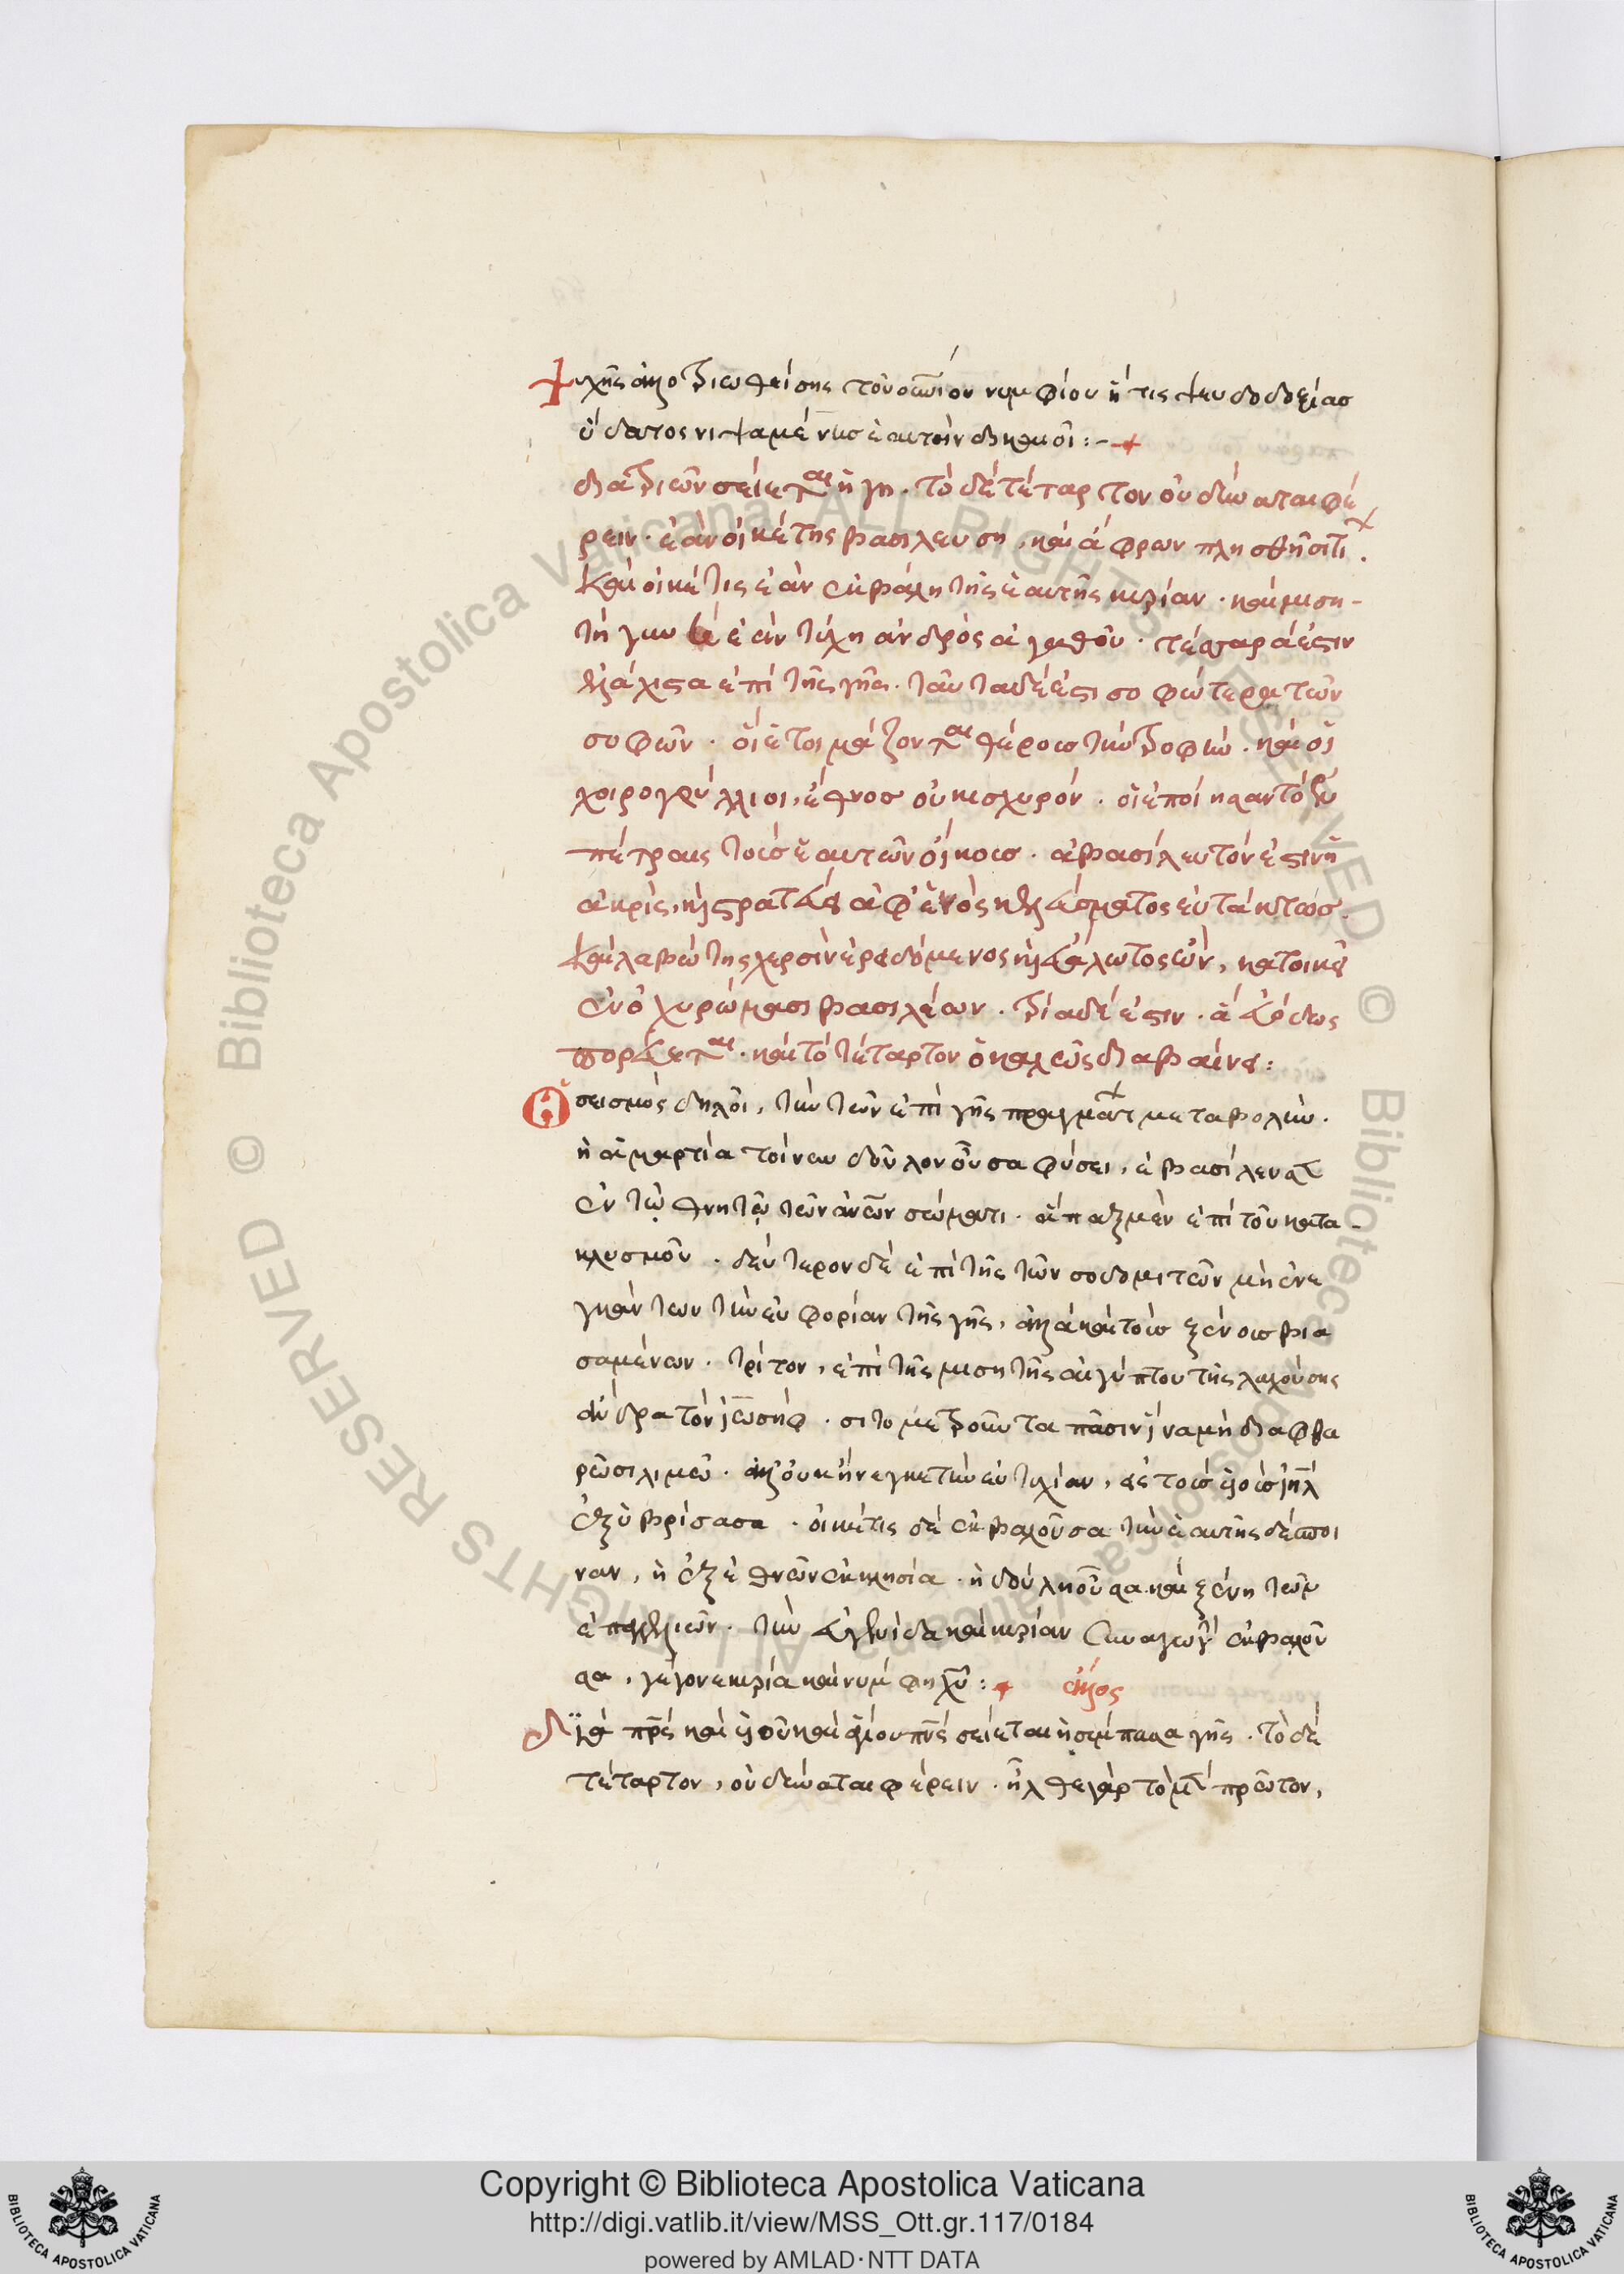 ψυχῆς ἀλλοτριωθείσης τοῦ οὐνίου νυμφίου ἥτις ψευδοδοξίας
ὕδατος νιψαμένης ἑαυτὴν διηθμοῖ:-+
διὰ τριῶν σείεται ἡ γῆ. τὸ δὲ τέταρτον οὐ δύναται φέ
ρειν. ἐὰν οἰκέτης βασιλεύση, καὶ ἄφρων πλησθῆ σιτί.
καὶ οἰκέτις ἐὰν ἐκβάλη τῆς ἑαυτῆς κυρίαν. καὶ μιση-
τὴ γυνὴ ἐὰν τύχη ἀνδρὸς ἀγαθοῦ. τέσσαρα ἐστιν
ἐλάχιστα ἐπὶ τῆς γῆς. ταῦτα δέ ἐστι σοφώτερα τῶν
σοφῶν. οἳ ἑτοιμάζονται θέροις τὴν τροφὴν. καὶ οἱ
χοιρογρύλλιοι, ἔθνος οὐκ ἰσχυρόν. οἳ ἐποίησαν τὸ ἐν
πέτραις τοῖς ἑαυτῶν οἴκοις. ἀβασίλευτόν ἐστιν ἡ
ἀκρὶς, καὶ στρατεύει ἀφ' ἑνὸς κελεύσματος εὐτάκτως.
καὶ λαβώτης χερσὶν ἐρειδόμενος καὶ εὐάλωτος ὢν, κατοικεῖ
ἐν ὀχυρώμασι βασιλέων. τρία δέ ἐστιν. ἃ εὐόδως
πορεύεται. καὶ τὸ τέταρτον ὃ καλῶς διαβαίνει:
Ὁ σεισμὸς δηλοῖ, τὴν τῶν ἐπὶ γῆς πραγμάτων μεταβολὴν.
ἡ ἁμαρτία τοίνυν δοῦλον οὖσα φύσει, ἐβασίλευσεν
ἐν τῷ θνητῷ τῶν ἀνων σώματι. ἅπαξ μὲν ἐπὶ τοῦ κατα-
κλυσμοῦ. δεύτερον δὲ ἐπὶ τῆς τῶν σοδομιτῶν μὴ ἐνε
γκάντων τὴν εὐφορίαν τῆς γῆς, ἀλλὰ καὶ τοὺς ξένους βια
σαμένων. τρίτον, ἐπὶ τῆς μισητῆς αἰγύπτου τῆς λαχούσης
ἄνδρα τὸν ἰωσὴφ. σιτομετροῦντα πᾶσιν ἵνα μὴ διαφθα
ρῶσι λιμῶ. ἀλλ' οὐκ ἤνεγκε τὴν εὐτυχίαν, εἰς τοὺς υἱοὺς ιηλ
ἐξυβρίσασα. οἰκέτις δὲ ἐκβαλοῦσα τὴν ἑαυτῆς δέσποι
ναν, ἡ ἐξ ἐθνῶν ἐκκλησία. ἡ δούλη οὖσα καὶ ξένη τῶν
ἐπαγγελιῶν. τὴν εὐγενίδα καὶ κυρίαν συναγωγὴν ἐκβαλοῦ
σα, γέγονε κυρία καὶ νύμφη χυ:+ ἄλλος
Διὰ πρς καὶ υἱοῦ καὶ ἁγίου πνς σείεται ἡ σύμπασα γῆς. τὸ δὲ
τέταρτον, οὐ δύναται φέρειν. ἦλθε γὰρ τὸ μὲν πρῶτον,
Copyright © Biblioteca Apostolica Vaticana
http://digi.vatlib.it/view/MSS_Ott.gr.117/0184
powered by AMLAD·NTT DATA
BIBLIOTECA APOSTOLICA VATICANA
BIBLIOTECA APOSTOLICA VATICANA
© Biblioteca Apostolica Vaticana ALL RIGHTS RESERVED
© Biblioteca Apostolica Vaticana ALL RIGHTS RESERVED